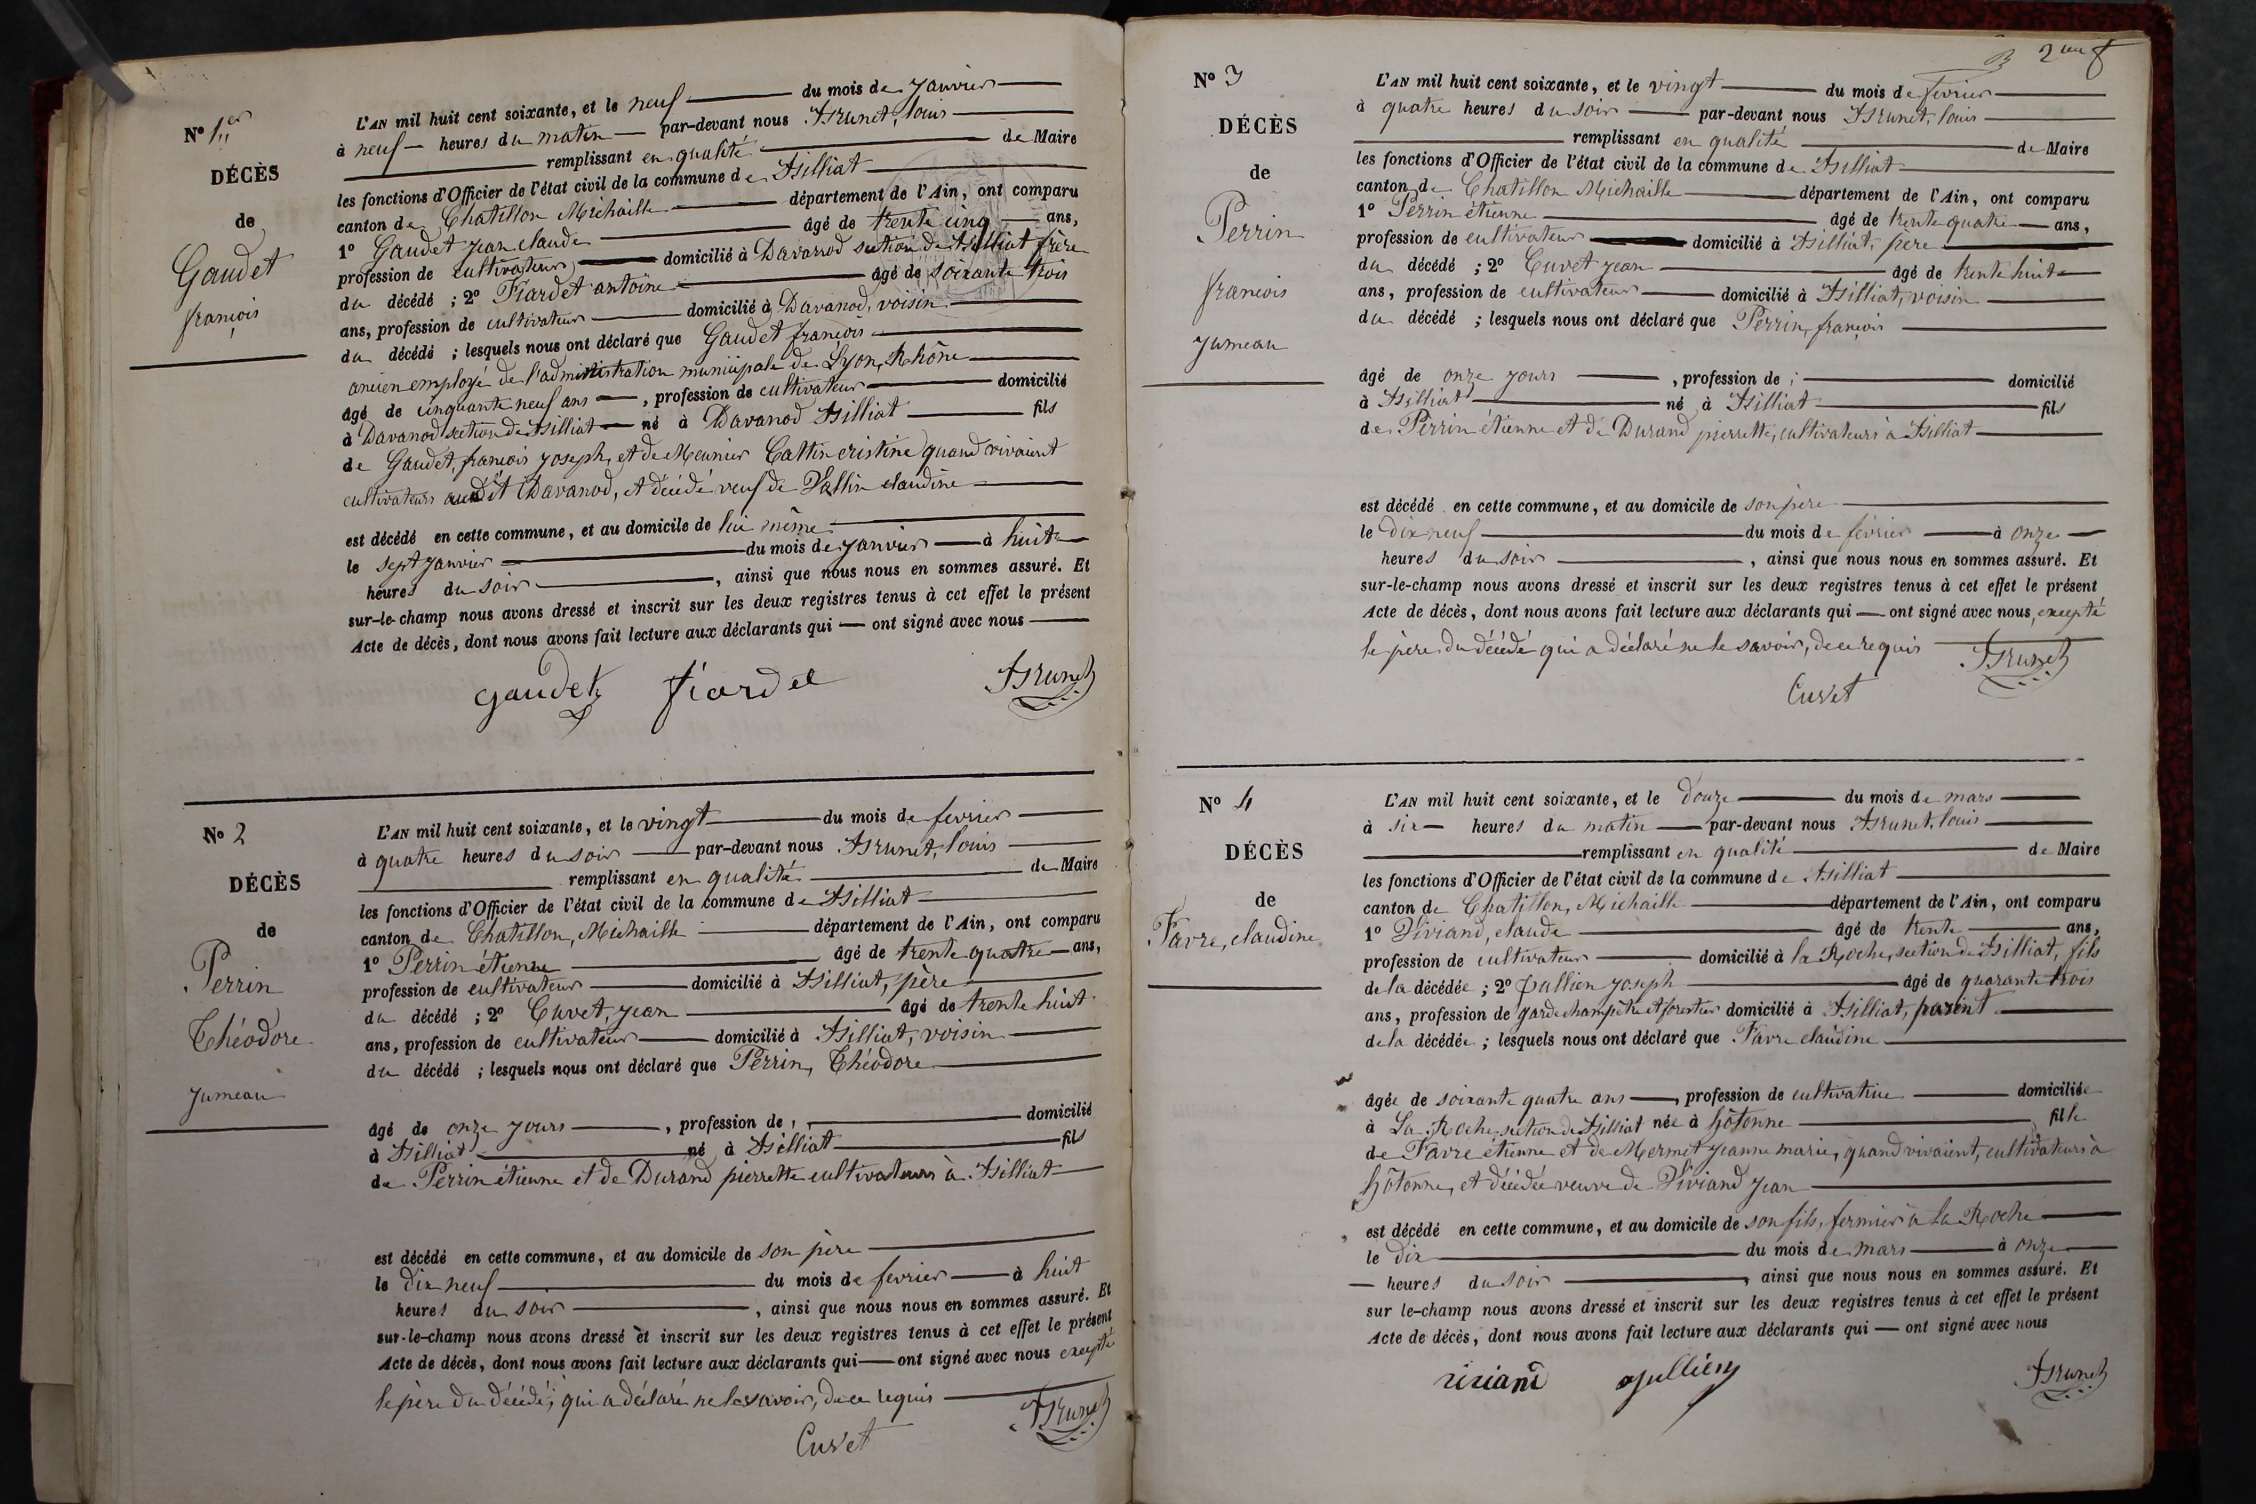 N° 1er
DÉCÈS
de
Gaudet
francois
L'AN mil huit cent soixante, et le neuf du mois de janvier
à neuf heures du matin par-devant nous Brunet, louis
remplissant en qualité de Maire
les fonctions d'Officier de l'état civil de la commune de Billiat
canton de Chatillon Michaille département de l'Ain, ont comparu
1° Gaudet jean claude âgé de trente cinq ans,
profession de cultivateur domicilié à Davanod section de Billiat frère
du décédé ; 2° Fiardet antoine âgé de soixante trois
ans, profession de cultivateur domicilié à Davanod, voisin
du décédé ; lesquels nous ont déclaré que Gaudet francois
ancien employé de l'administration municipale de Lyon, Rhône
âgé de cinquante neuf ans, profession de cultivateur domicilié
à Davanod section de Billiat né à Davanod Billiat fils
de Gaudet, francois joseph, et de Meunier Cattin cristine quand vivaient
cultivateurs audit Davanod, et décédé veuf de Vallin claudine
est décédé en cette commune, et au domicile de lui même
le sept janvier du mois de janvier à huit
heures du soir, ainsi que nous nous en sommes assuré. Et
sur-le-champ nous avons dressé et inscrit sur les deux registres tenus à cet effet le présent
Acte de décès, dont nous avons fait lecture aux déclarants qui — ont signé avec nous
gaudet fiardet Brunet
N° 2
DÉCÈS
de
Perrin
Théodore
jumeau
L'AN mil huit cent soixante, et le vingt du mois de fevrier
à quatre heures du soir par-devant nous Brunet, louis
remplissant en qualité de Maire
les fonctions d'Officier de l'état civil de la commune de Billiat
canton de Châtillon, Michaille département de l'Ain, ont comparu
1° Perrin étienne âgé de trente quatre ans,
profession de cultivateur domicilié à Billiat, père
du décédé ; 2° Cuvet, jean âgé de trente huit
ans, profession de cultivateur domicilié à Billiat, voisin
du décédé ; lesquels nous ont déclaré que Perrin, Théodore
âgé de onze jours, profession de , domicilié
à Billiat né à Billiat fils
de Perrin étienne et de Durand pierrette cultivateurs à Billiat
est décédé en cette commune, et au domicile de son père
le dix neuf du mois de fevrier à huit
heures du soir, ainsi que nous nous en sommes assuré. Et
sur-le-champ nous avons dressé et inscrit sur les deux registres tenus à cet effet le présent
Acte de décès, dont nous avons fait lecture aux déclarants qui — ont signé avec nous excepté
le père du décédé, qui a déclaré ne le savoir, de ce requis
Cuvet Brunet
2me
N° 3
DÉCÈS
de
Perrin
francois
jumeau
L'AN mil huit cent soixante, et le vingt du mois de fevrier
à quatre heures du soir par-devant nous Brunet, louis
remplissant en qualité de Maire
les fonctions d'Officier de l'état civil de la commune de Billiat
canton de Chatillon Michaille département de l'Ain, ont comparu
1° Perrin étienne âgé de trente quatre ans,
profession de cultivateur domicilié à Billiat, père
du décédé ; 2° Cuvet jean âgé de trente huit
ans, profession de cultivateur domicilié à Billiat, voisin
du décédé ; lesquels nous ont déclaré que Perrin, françois
âgé de onze jours, profession de , domicilié
à Billiat né à Billiat fils
de Perrin étienne et de Durand pierrette, cultivateurs à Billiat
est décédé en cette commune, et au domicile de son père
le dix neuf du mois de fevrier à onze
heures du soir, ainsi que nous nous en sommes assuré. Et
sur-le-champ nous avons dressé et inscrit sur les deux registres tenus à cet effet le présent
Acte de décès, dont nous avons fait lecture aux déclarants qui — ont signé avec nous, excepté
le père du décédé qui a déclaré ne le savoir, de ce requis
Cuvet Brunet
N° 4
DÉCÈS
de
Favre, claudine
L'AN mil huit cent soixante, et le douze du mois de mars
à six heures du matin par-devant nous Brunet, louis
remplissant en qualité de Maire
les fonctions d'Officier de l'état civil de la commune de Billiat
canton de Chatillon, Michaille département de l'Ain, ont comparu
1° Viviand, claude âgé de trente ans,
profession de cultivateur domicilié à la Roche, section de Billiat, fils
de la décédée ; 2° Jullien joseph âgé de quarante trois
ans, profession de garde champêtre et forestier domicilié à Billiat, parent
de la décédée ; lesquels nous ont déclaré que Favre claudine
âgée de soixante quatre ans, profession de cultivatrice domiciliée
à La Roche, section de Billiat née à hôtonne fille
de Favre étienne et de Mermet jeanne marie, quand vivaient, cultivateurs à
hôtonne, et décédée veuve de Viviand jean
est décédé en cette commune, et au domicile de son fils, fermier à La Roche
le dix du mois de mars à onze
heures du soir, ainsi que nous nous en sommes assuré. Et
sur le-champ nous avons dressé et inscrit sur les deux registres tenus à cet effet le présent
Acte de décès, dont nous avons fait lecture aux déclarants qui — ont signé avec nous
viviand Jullien Brunet